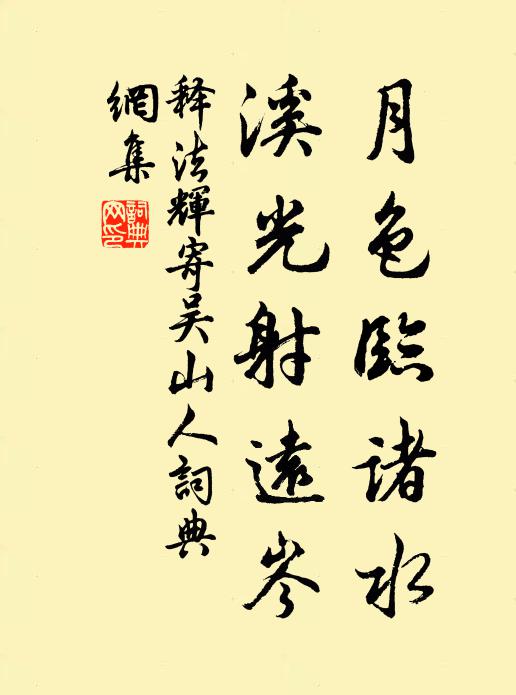 月色臨諸水
溪光射遠岑
释法輝寄吴山人詞典
網集
詞典
网印